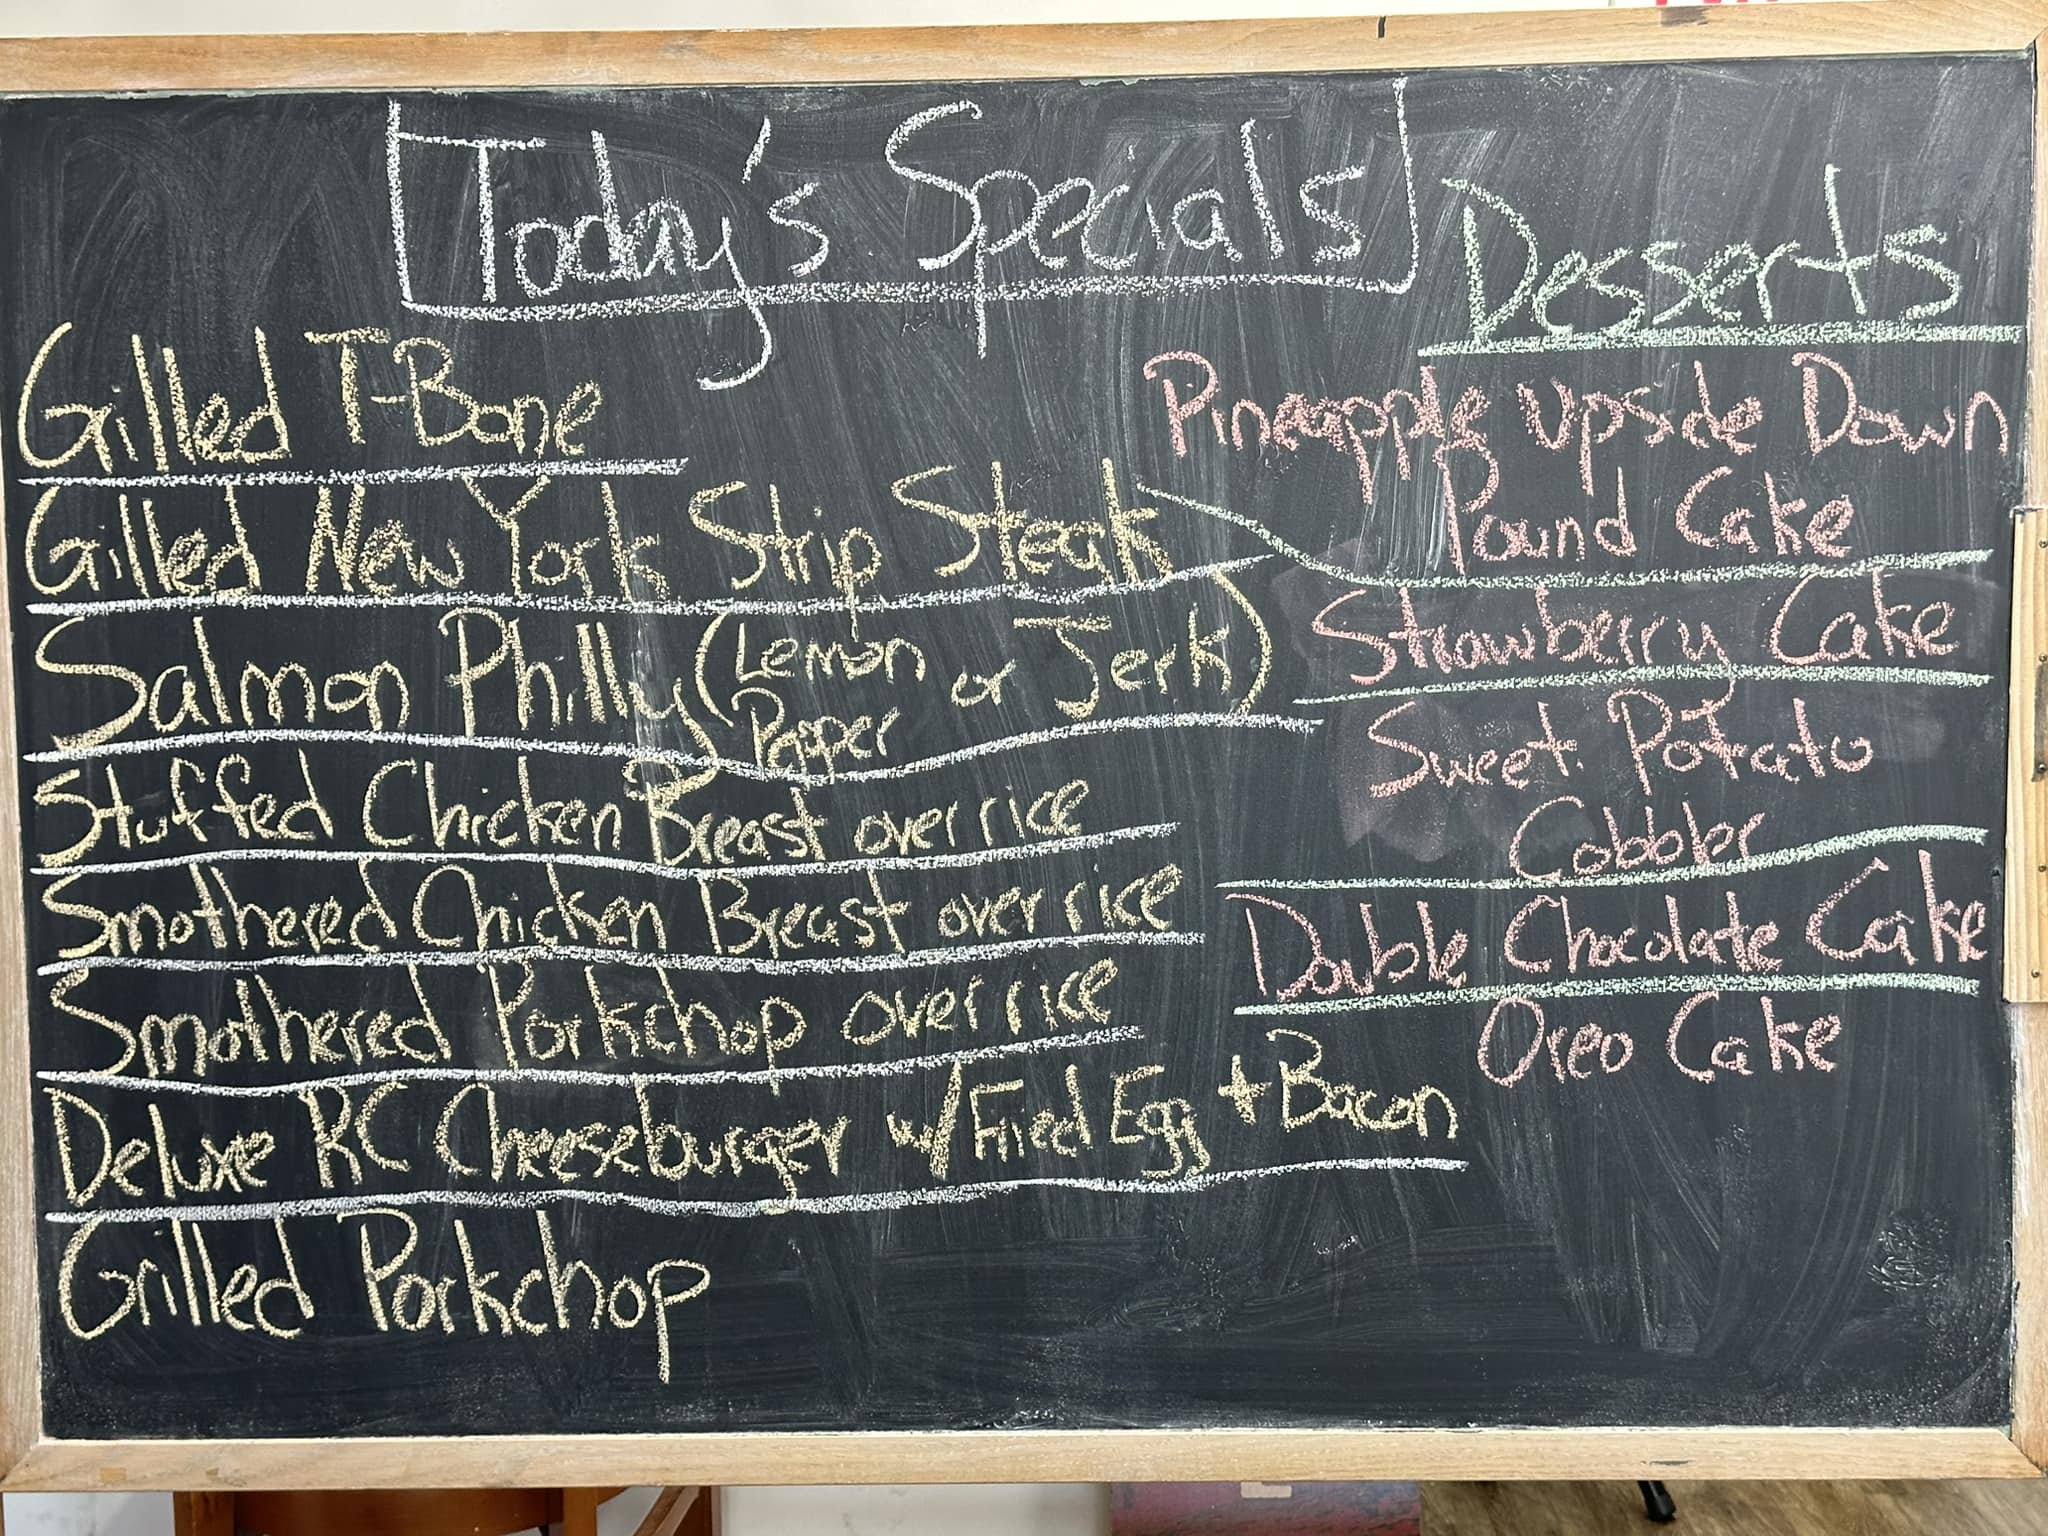 Today's Specials
Grilled T-Bone
Grilled New York Strip Steak
Salmon Philly (Lemon Pepper or Jerk)
Stuffed Chicken Breast over rice
Smothered Chicken Breast over rice
Smothered Porkchop over rice
Deluxe RC Cheeseburger w/ Fried Egg + Bacon
Grilled Porkchop
Desserts
Pineapple Upside Down
Pound Cake
Strawberry Cake
Sweet Potato
Cobbler
Double Chocolate Cake
Oreo Cake